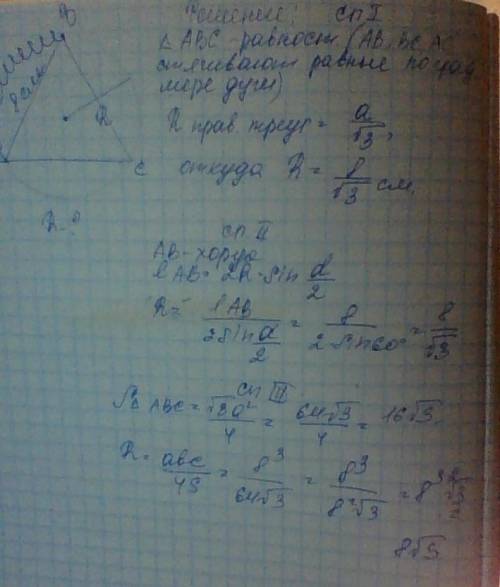 Решение: сп I
B
△ ABC - равност (AB, BC, AC
стягивают равные по град
мере дуги)
8 см
R
R прав. треуг = a/√3,
C
откуда R = 8/√3 см.
R - ?
сп II
AB - хорда
l AB = 2R · sin α/2
R = l AB / 2 sin α/2 = 8 / 2 sin 60° = 8/√3
сп III
S△ ABC = √3a²/4 = 64√3/4 = 16√3
R = abc/4S = 8³/64√3 = 8³/8²√3
8√3